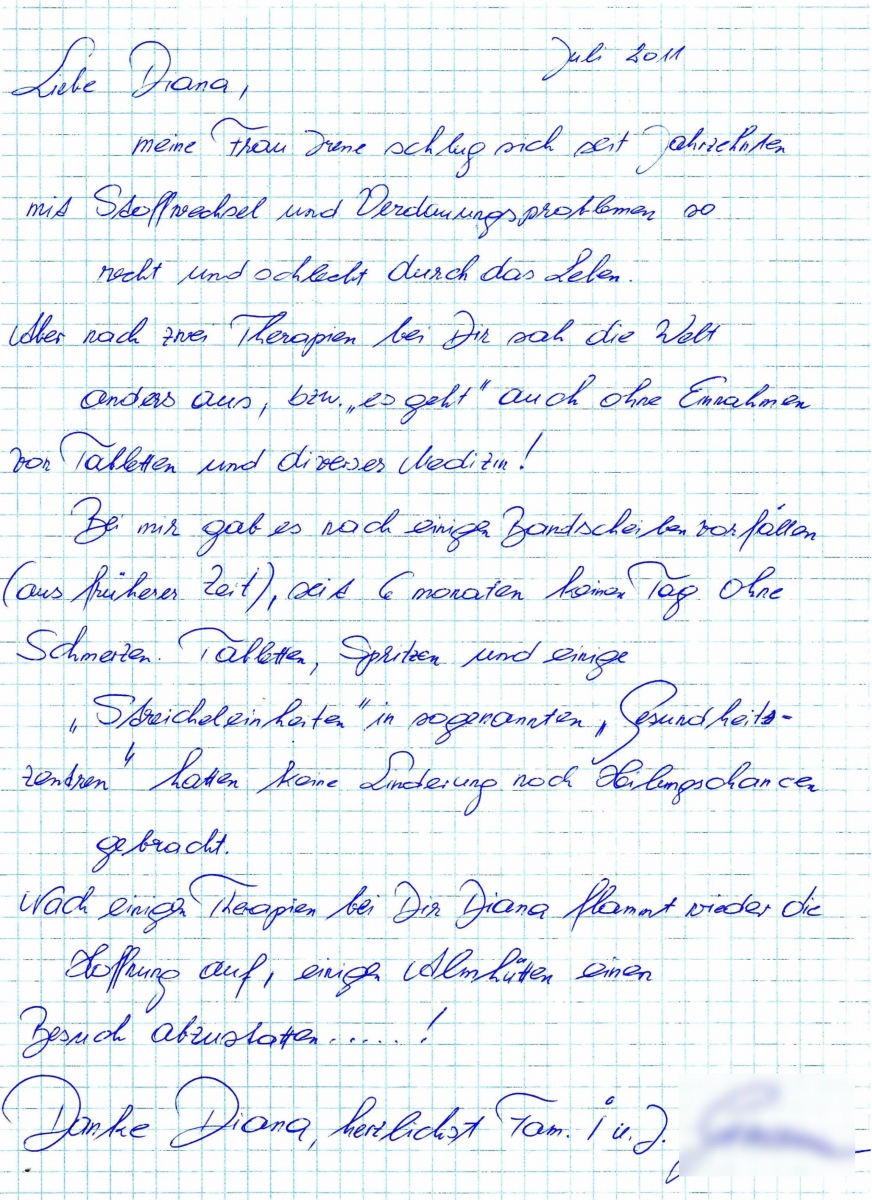 Juli 2011
Liebe Diana,
meine Frau Irene schlug sich seit Jahrzehnten
mit Stoffwechsel und Verdauungsproblemen so
recht und schlecht durch das Leben.
Aber nach zwei Therapien bei Dir sah die Welt
anders aus, bzw. „es geht" auch ohne Einnahmen
von Tabletten und diverser Medizin!
Bei mir gab es nach einigen Bandscheibenvorfällen
(aus früherer Zeit), seit 6 monaten keinen Tag ohne
Schmerzen. Tabletten, Spritzen und einige
„Streicheleinheiten" in sogenannten „Gesundheits-
zentren" hatten keine Linderung noch Heilungschancen
gebracht.
Nach einigen Therapien bei Dir Diana flammt wieder die
Hoffnung auf, einigen Almhütten einen
Besuch abzustatten.....!
Danke Diana, herzlichst Fam. I u. J.